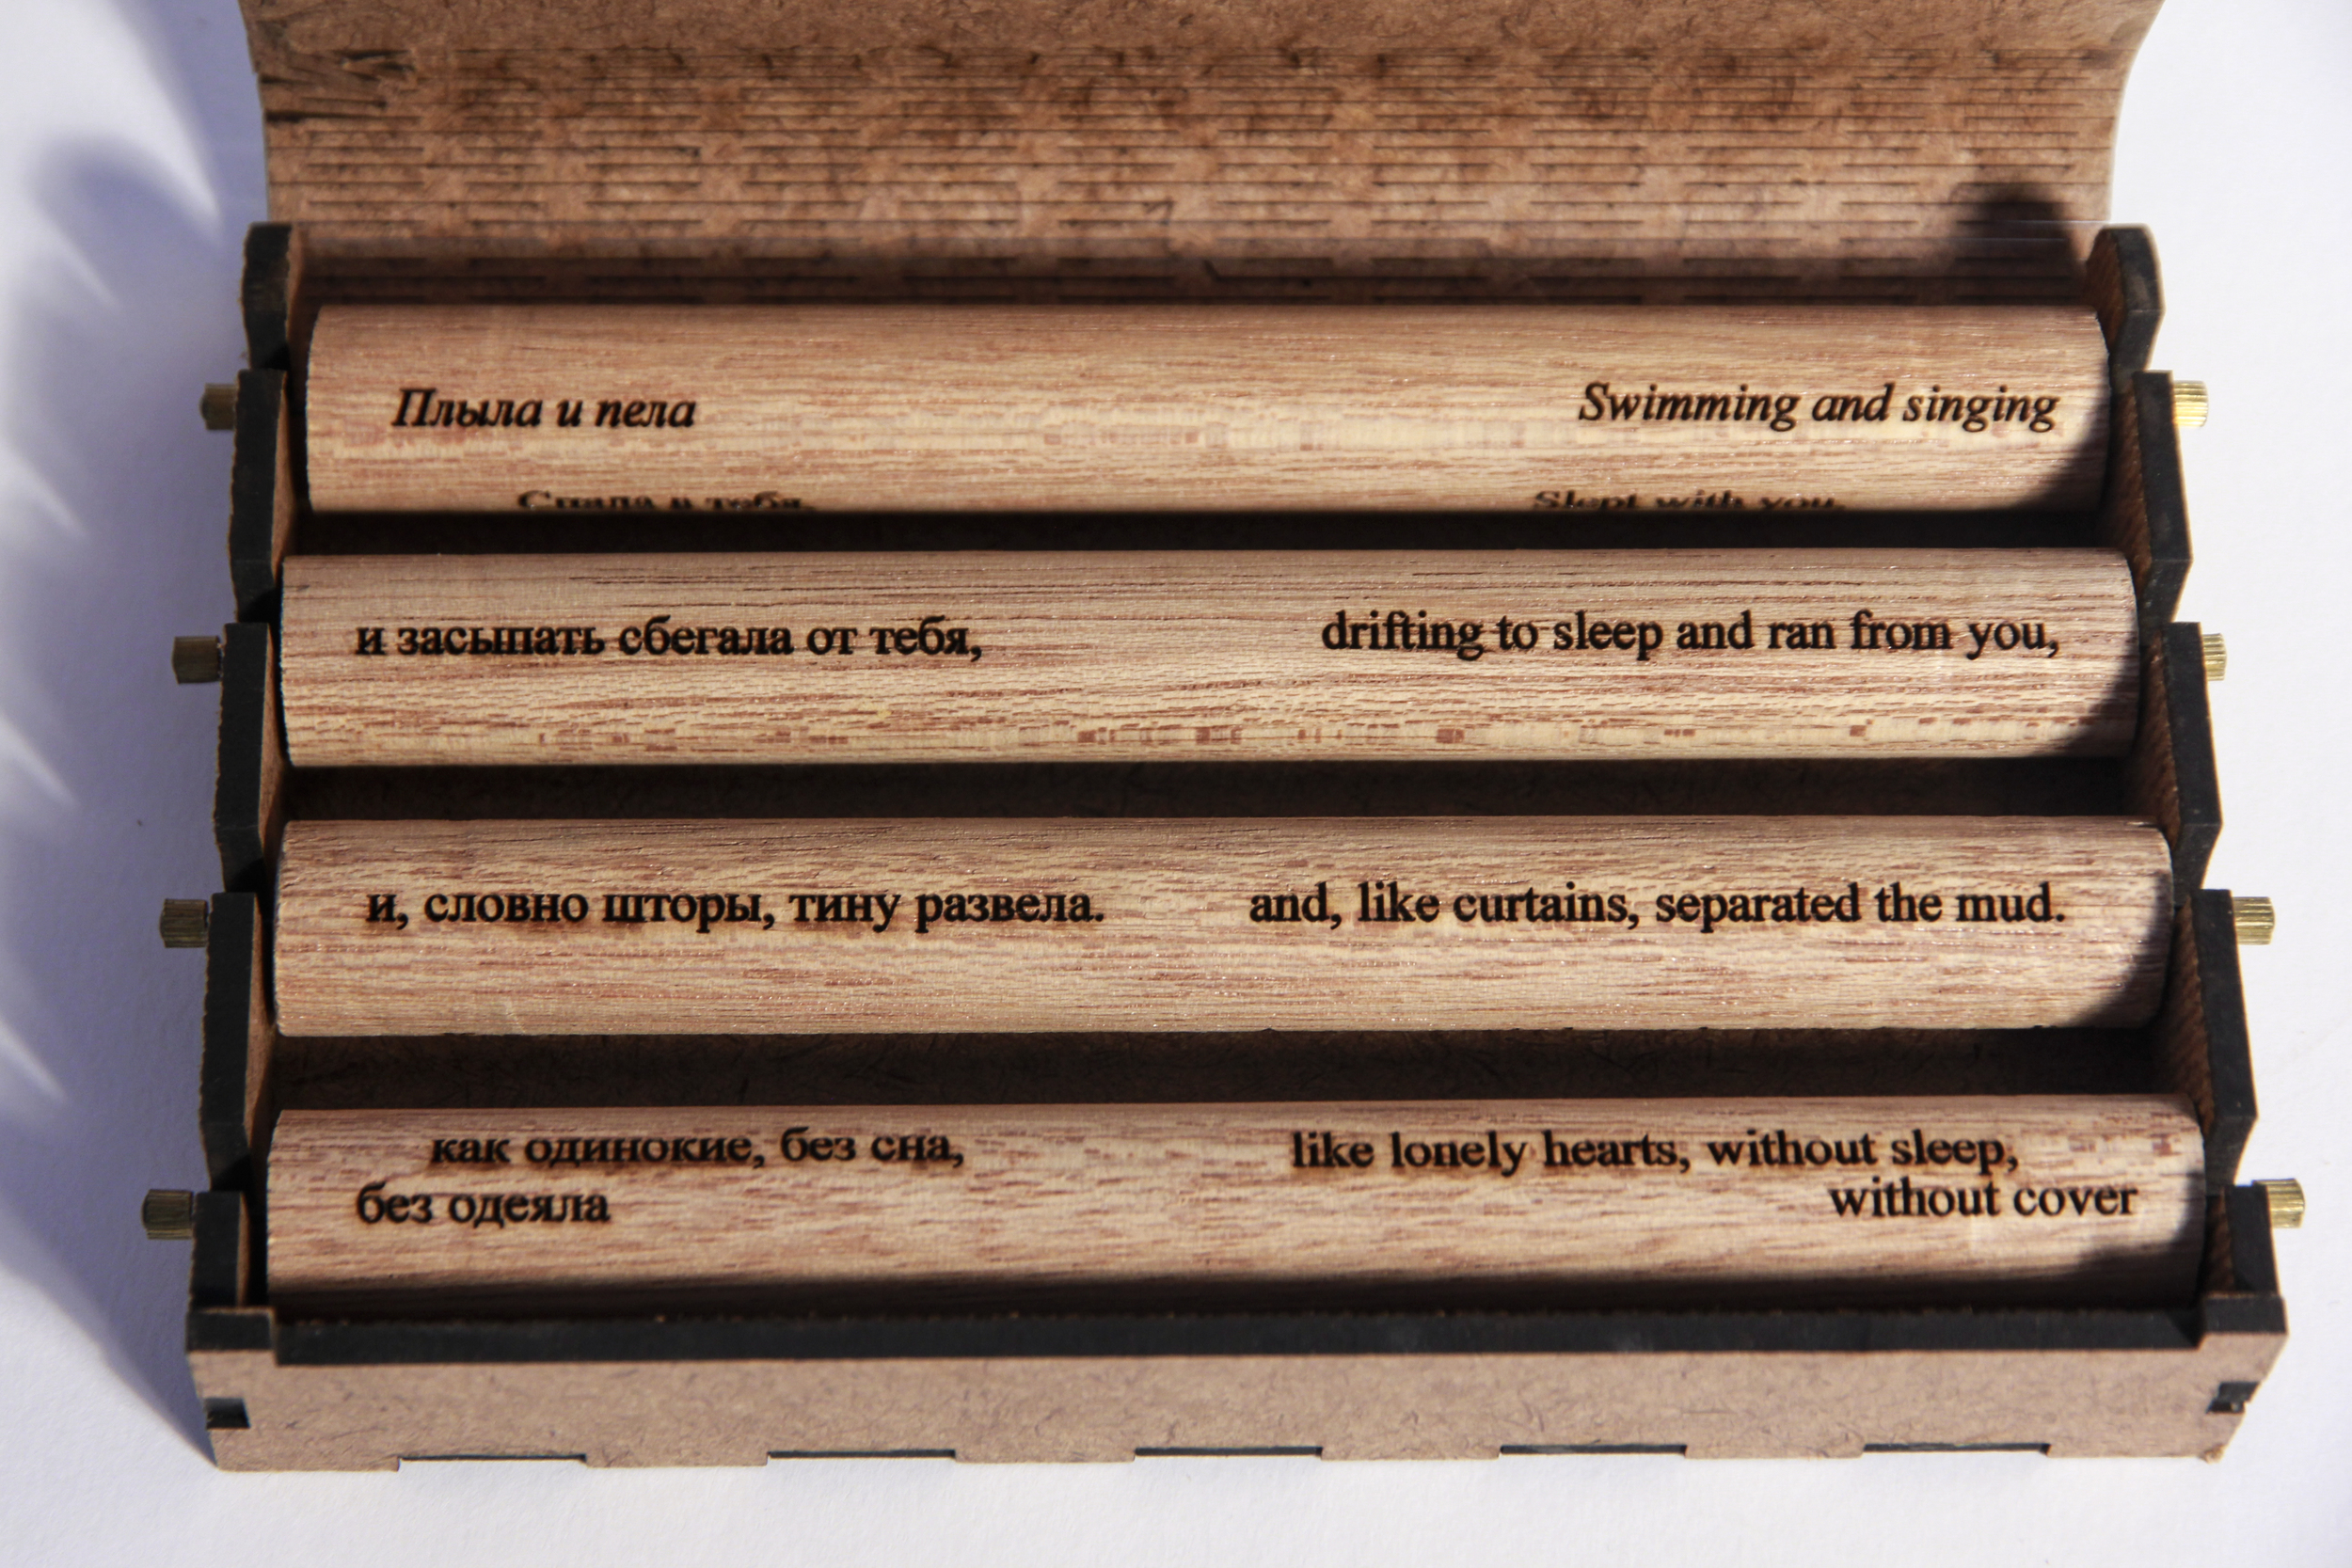 Плыла и пела Swimming and singing
Slept with you,
и засыпать сбегала от тебя, drifting to sleep and ran from you,
и, словно шторы, тину развела. and, like curtains, separated the mud.
как одинокие, без сна, like lonely hearts, without sleep,
без одеяла without cover